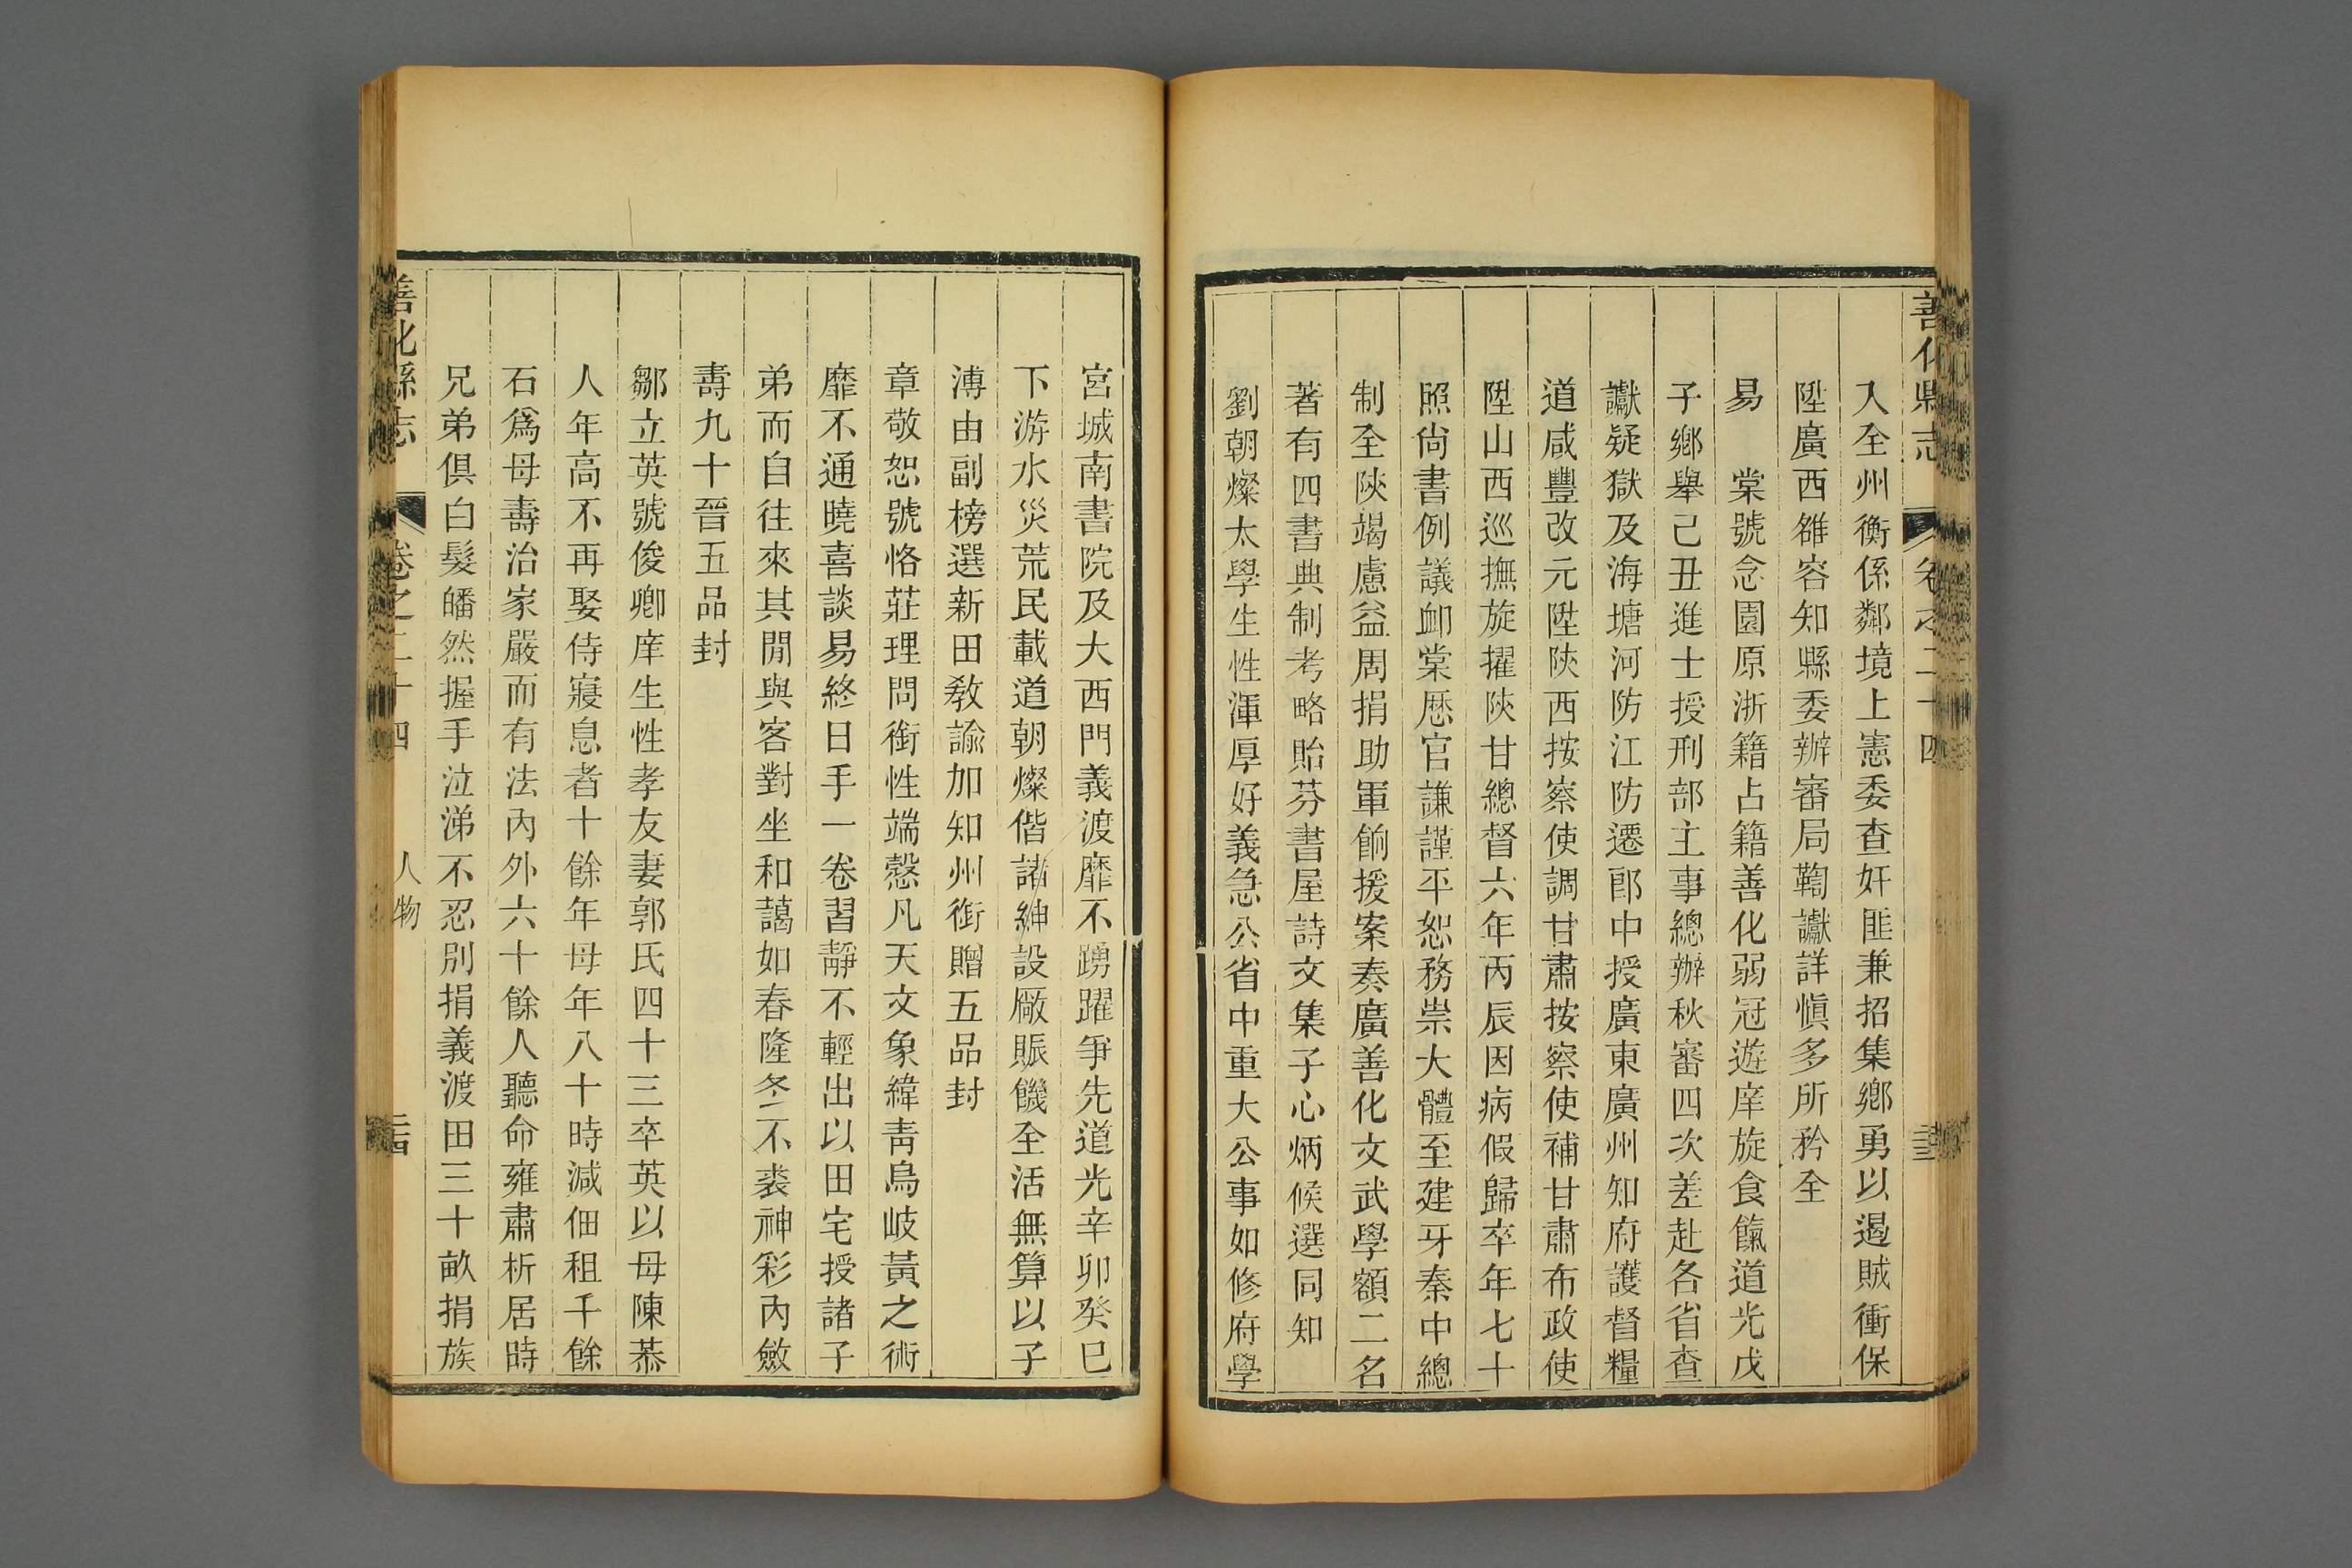 善化縣志 卷之二十四
入全州衡係鄰境上憲委查奸匪兼招集鄉勇以遏賊衝保
陞廣西雒容知縣委辦審局鞫讞詳愼多所矜全
易 棠號念園原浙籍占籍善化弱冠遊庠旋食餼道光戊
子鄉舉己丑進士授刑部主事總辦秋審四次差赴各省查
讞疑獄及海塘河防江防遷郎中授廣東廣州知府護督糧
道咸豐改元陞陝西按察使調甘肅按察使補甘肅布政使
陞山西巡撫旋擢陝甘總督六年丙辰因病假歸卒年七十
照尙書例議卹棠歷官謙謹平恕務崇大體至建牙秦中總
制全陝竭慮益周捐助軍餉援案奏廣善化文武學額二名
著有四書典制考略貽芬書屋詩文集子心炳候選同知
劉朝燦太學生性渾厚好義急公省中重大公事如修府學
宮城南書院及大西門義渡靡不踴躍爭先道光辛卯癸巳
下游水災荒民載道朝燦偕諸紳設厰賑饑全活無算以子
溥由副榜選新田敎諭加知州銜贈五品封
章敬恕號恪莊理問銜性端慤凡天文象緯靑烏岐黃之術
靡不通曉喜談易終日手一卷習靜不輕出以田宅授諸子
弟而自往來其閒與客對坐和藹如春隆冬不裘神彩內斂
壽九十晉五品封
鄒立英號俊卿庠生性孝友妻郭氏四十三卒英以母陳慕
人年高不再娶侍寢息者十餘年母年八十時減佃租千餘
石爲母壽治家嚴而有法內外六十餘人聽命雍肅析居時
兄弟俱白髮皤然握手泣涕不忍別捐義渡田三十畝捐族
善化縣志 卷之二十四 人物